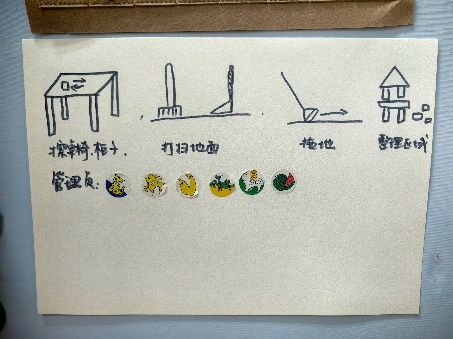 擦桌椅、柜子、
打扫地面
拖地
整理区域
管理员: